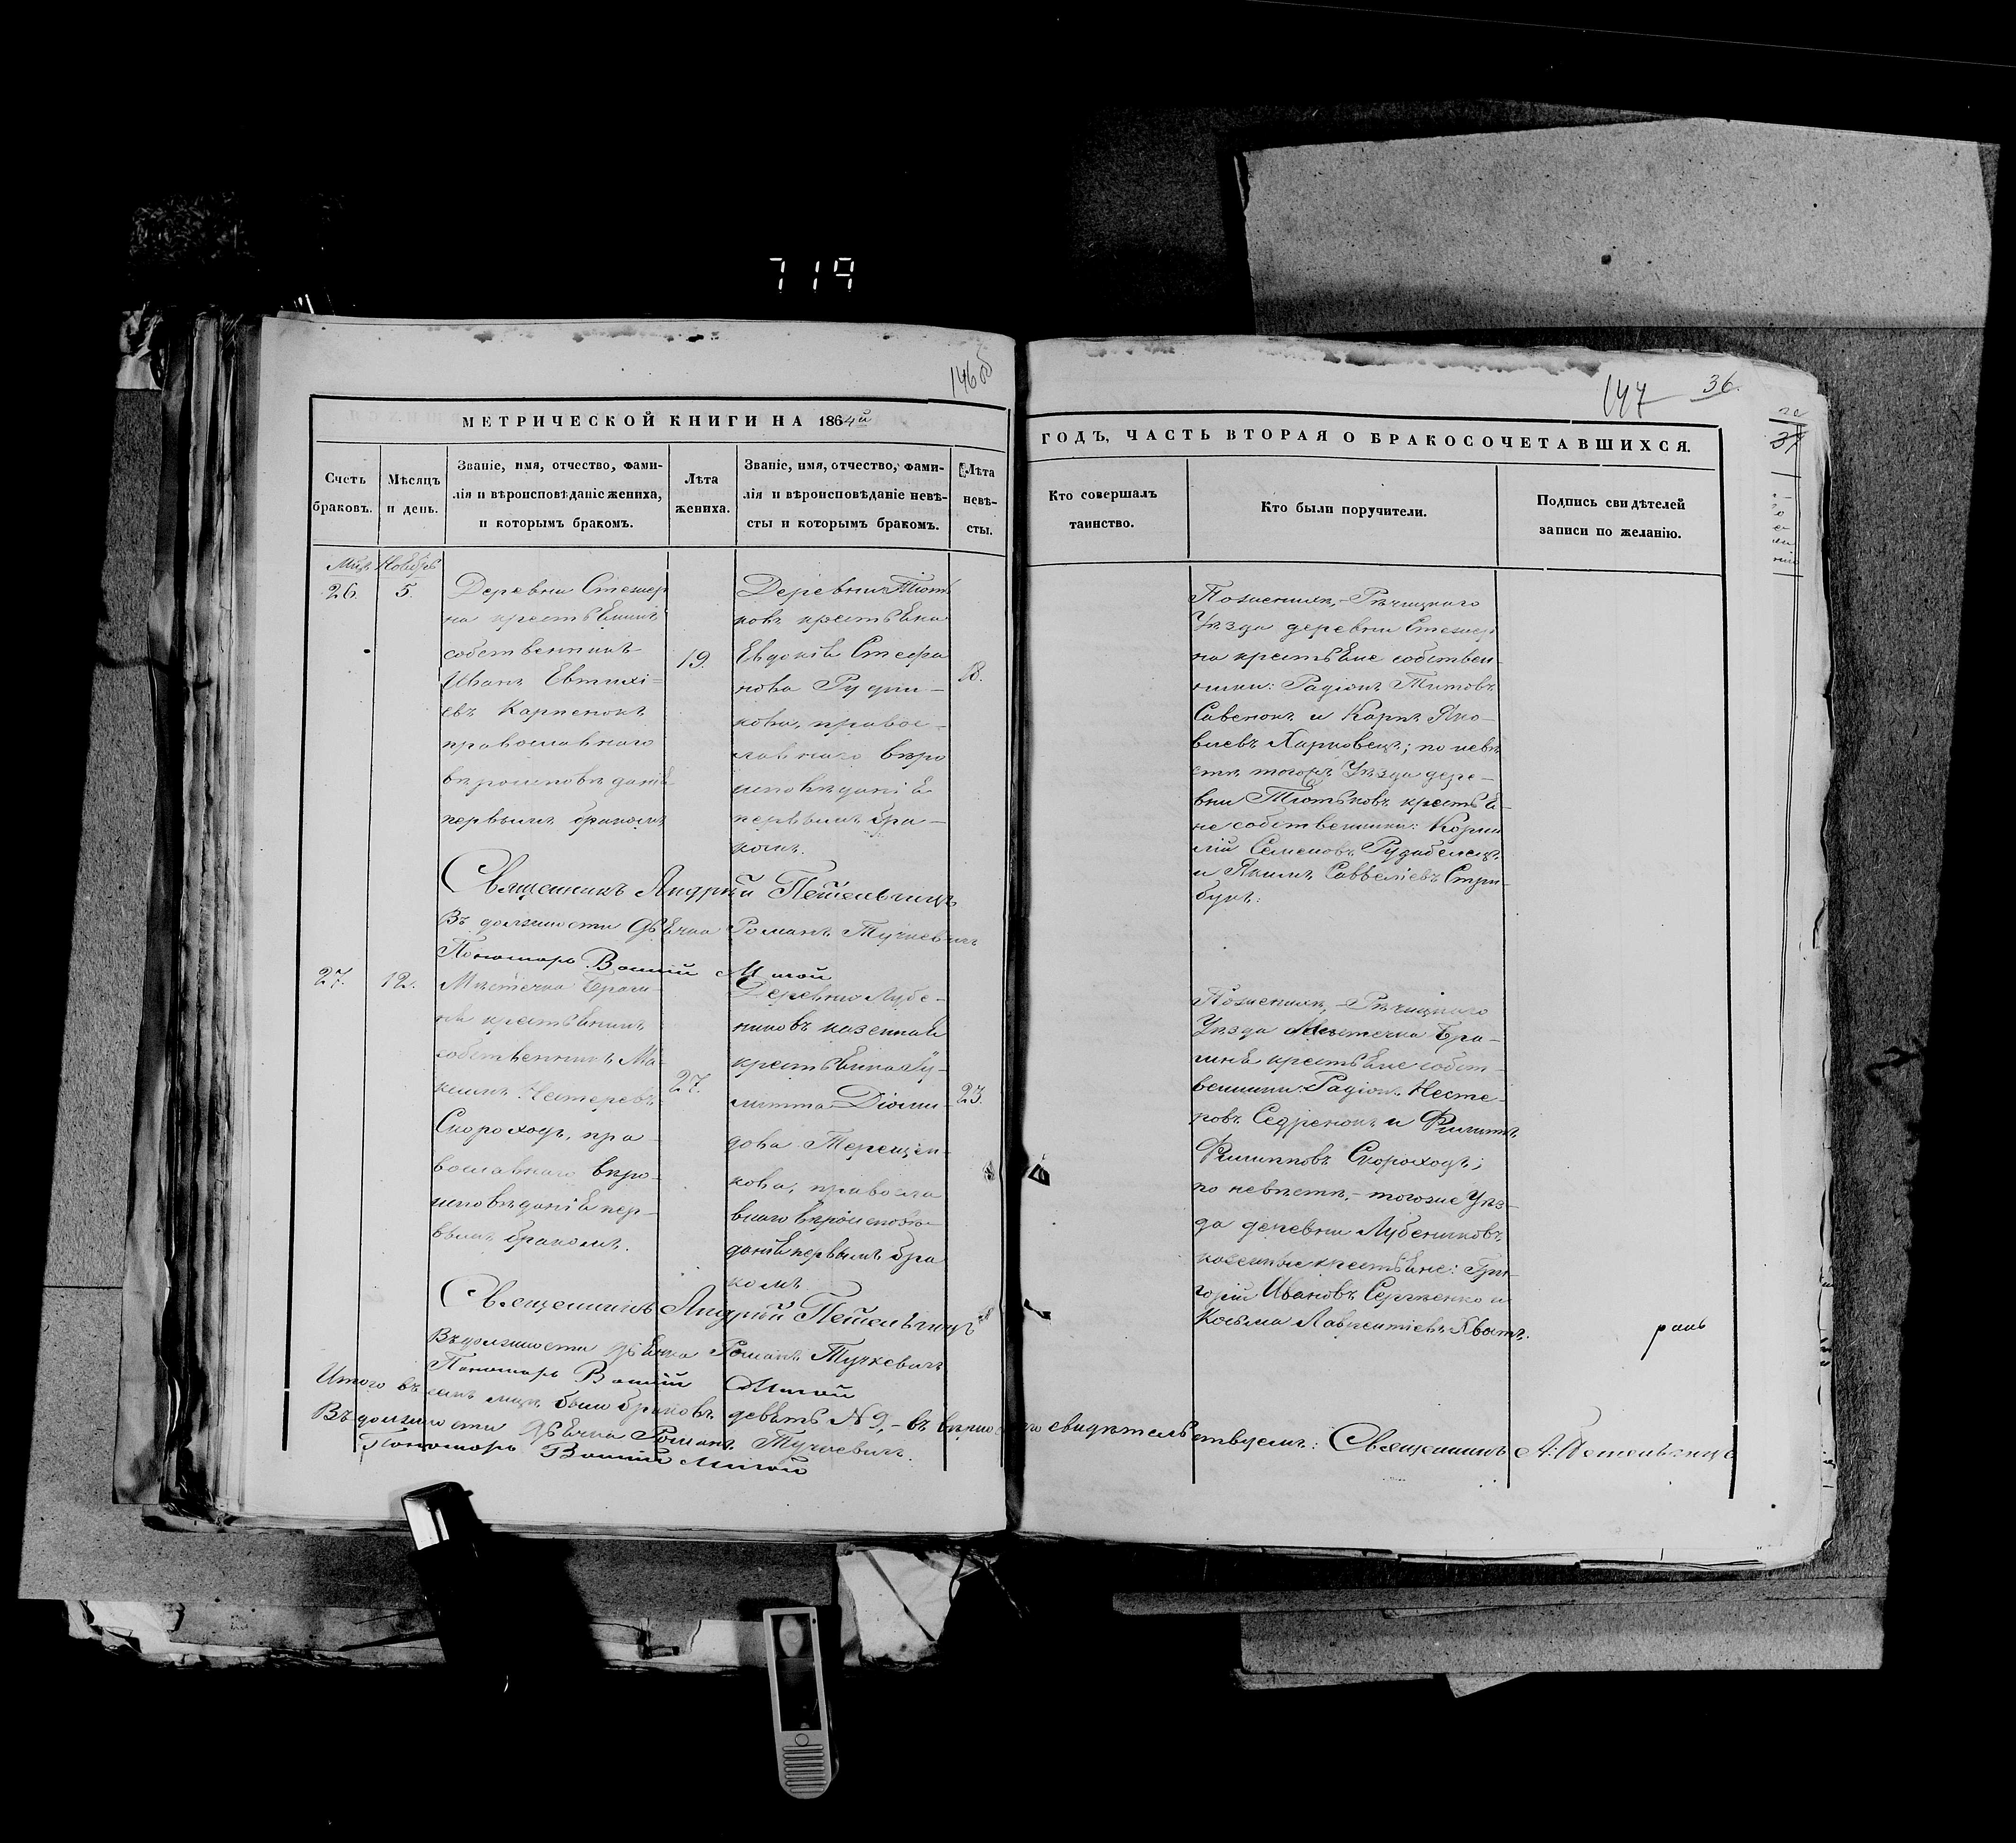 719
146об
147
36.
МЕТРИЧЕСКОЙ КНИГИ НА 1864й
ГОДЪ, ЧАСТЬ ВТОРАЯ О БРАКОСОЧЕТАВШИХСЯ.
Счетъ
браковъ.
Мѣсяцъ
и день.
Званіе, имя, отчество, фами-
лія и вѣроисповѣданіе жениха,
и которымъ бракомъ.
Лѣта
жениха.
Званіе, имя, отчество, фами-
лія и вѣроисповѣданіе невѣ-
сты и которымъ бракомъ.
Лѣта
невѣ-
сты.
Кто совершалъ
таинство.
Кто были поручители.
Подпись свидѣтелей
записи по желанію.
Мцъ Ноябрь
26.
5.
Деревни
на крестьянинъ
собственникъ
Иванъ Евтихі-
евъ Карпенокъ
православнаго
вѣроисповѣданія
первымъ бракомъ
19.
Деревни Тють
ковъ крестьянка
Евдокія Стефа
нова
кова, правос-
лавнаго вѣро
исповѣданія
первымъ бра-
комъ.
18.
По женихѣ, - Рѣчицкаго
Уѣзда деревни
на крестьяне собствен-
ники: Радіонъ Титовъ
Савенокъ и Карпъ Яко-
влевъ Харковецъ; по невѣ
стѣ тогожъ Уѣзда дере-
вни Тютьковъ крестья-
не собственники: Корни
лій Семеновъ Рудабелецъ
и Якимъ Савельевъ Стри-
букъ.
Священникъ Андрей Петельчицъ
Въ должности дьячка Романъ Тучкевичъ
Пономарь
27.
12.
Мѣстечка Браги-
ня крестьянинъ
собственникъ Ма-
ксимъ Нестеровъ
Скороходъ, пра-
вославнаго вѣро-
исповѣданія пер-
вымъ бракомъ.
27.
Деревни Лубе-
никовъ казенная
крестьянка Іу-
литта Діоми-
дова Терещен-
кова, правосла
внаго вѣроисповѣ-
данія первымъ бра
комъ
23.
По женихѣ, - Рѣчицкаго
Уѣзда Мѣстечка Бра-
гиня крестьяне собст-
венники: Радіонъ Несте-
ровъ Седренокъ и Филиппъ
Филипповъ Скороходъ;
по невѣстѣ, - тогоже Уѣз-
да деревни Лубениковъ
казенные крестьяне: Гри-
горій Ивановъ Сергѣенко и
Козьма Лаврентіевъ Хвостъ.
Священникъ Андрей Петельчицъ
Въ должности дьячка Романъ Тучкевичъ
Пономарь
Итого въ семъ мцѣ было браковъ девять № 9, - въ вѣрности сего свидѣтельствуемъ: Священникъ А. Петельчицъ
Въ должности дьячка Романъ Тучкевичъ.
Пономарь